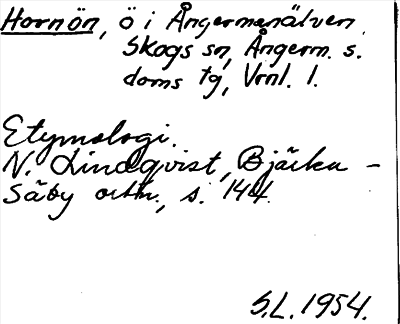 Hornön, ö i Ångermanälven
Skogs sn, Ångerm. s.
doms tg, Vrnl. l.
Etymologi.
N. Lindqvist, Bjärka -
Säby ortn., s. 144.
S.L. 1954.